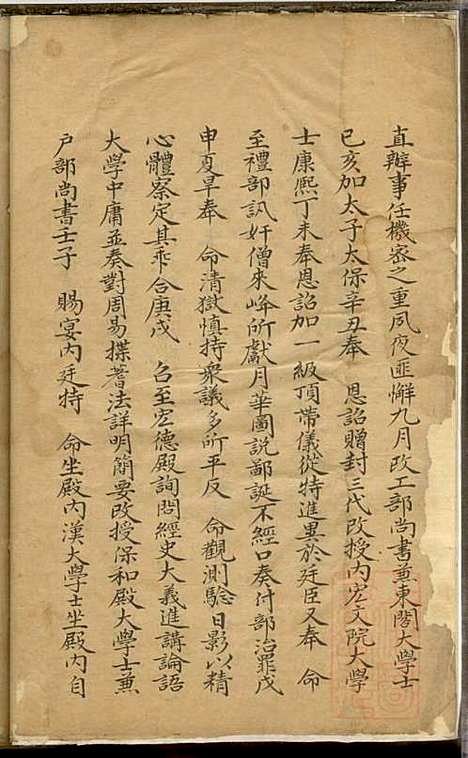 直辦事任機密之重夙夜匪懈九月改工部尚書兼東閣大學士
己亥加太子太保辛丑奉　恩詔贈封三代改授內宏文院大學
士康熙丁未奉恩詔加一級頂帶儀從特進異於廷臣又奉　命
至禮部訊奸僧來峰所獻月華圖說鄙誕不經口奏付部治罪戊
申夏旱奉　命清獄慎持衆議多所平反　命觀測驗日影以精
心體察定其乖合庚戌　召至宏德殿詢問經史大義進講論語
大學中庸並奏對周易揲蓍法詳明簡要改授保和殿大學士兼
戶部尚書壬子　賜宴內廷特　命坐殿內漢大學士坐殿內自